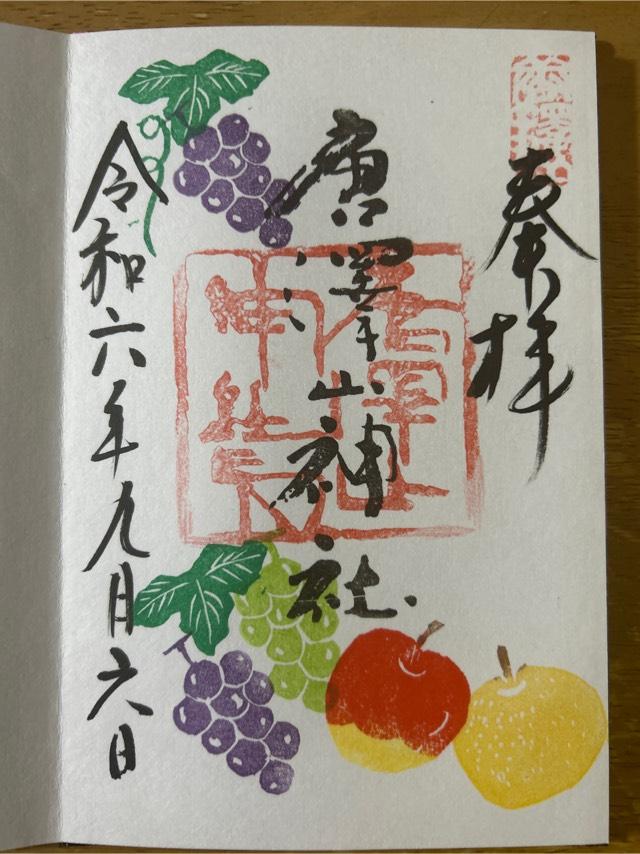 奉拝
唐澤山神社
令和六年九月六日